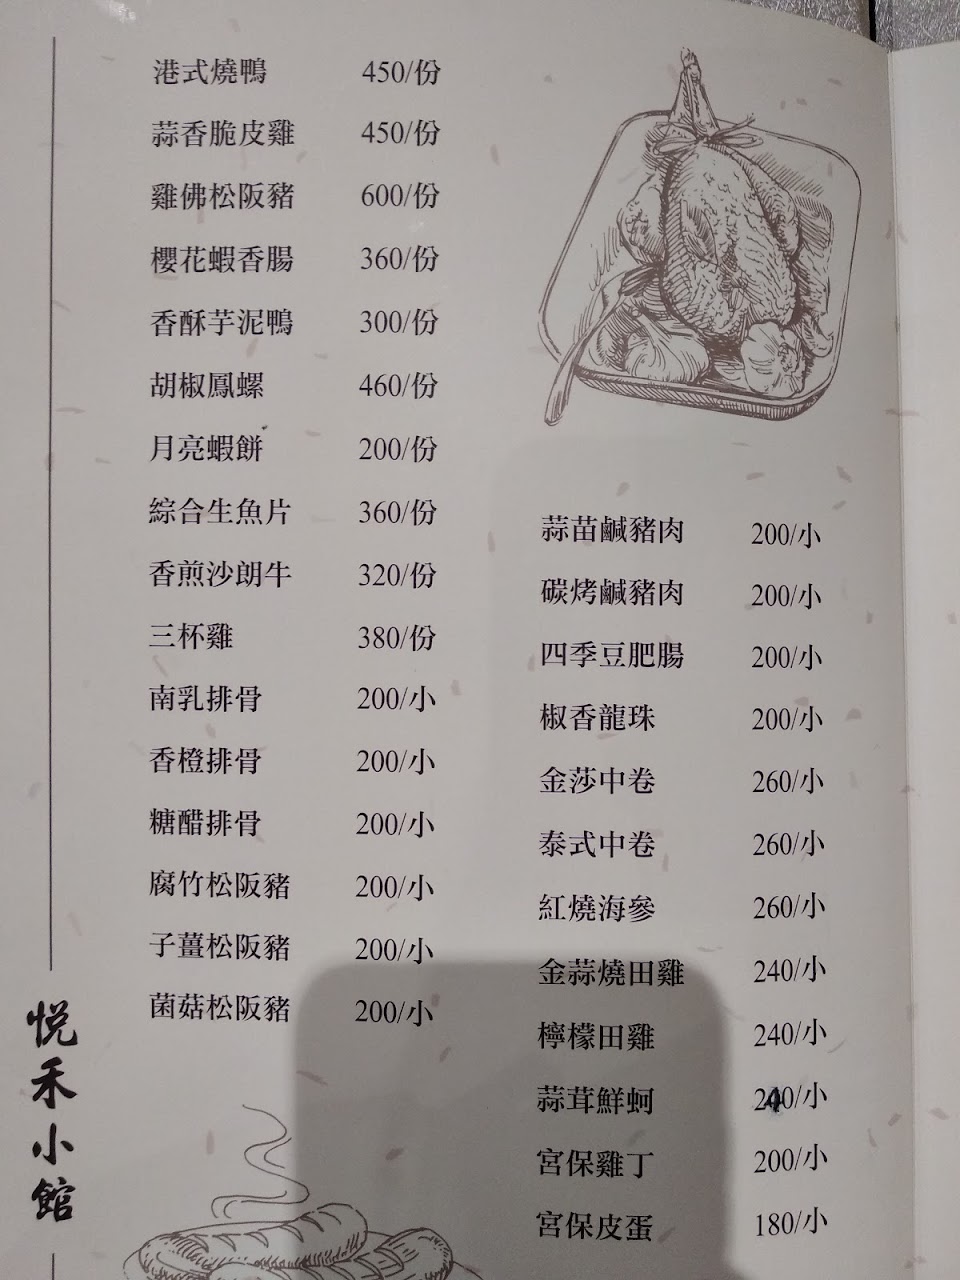 港式燒鴨 450/份
蒜香脆皮雞 450/份
雞佛松阪豬 600/份
櫻花蝦香腸 360/份
香酥芋泥鴨 300/份
胡椒鳳螺 460/份
月亮蝦餅 200/份
綜合生魚片 360/份
香煎沙朗牛 320/份
三杯雞 380/份
南乳排骨 200/小
香橙排骨 200/小
糖醋排骨 200/小
腐竹松阪豬 200/小
子薑松阪豬 200/小
菌菇松阪豬 200/小
蒜苗鹹豬肉 200/小
碳烤鹹豬肉 200/小
四季豆肥腸 200/小
椒香龍珠 200/小
金莎中卷 260/小
泰式中卷 260/小
紅燒海參 260/小
金蒜燒田雞 240/小
檸檬田雞 240/小
蒜茸鮮蚵 240/小
宮保雞丁 200/小
宮保皮蛋 180/小
悅禾小館